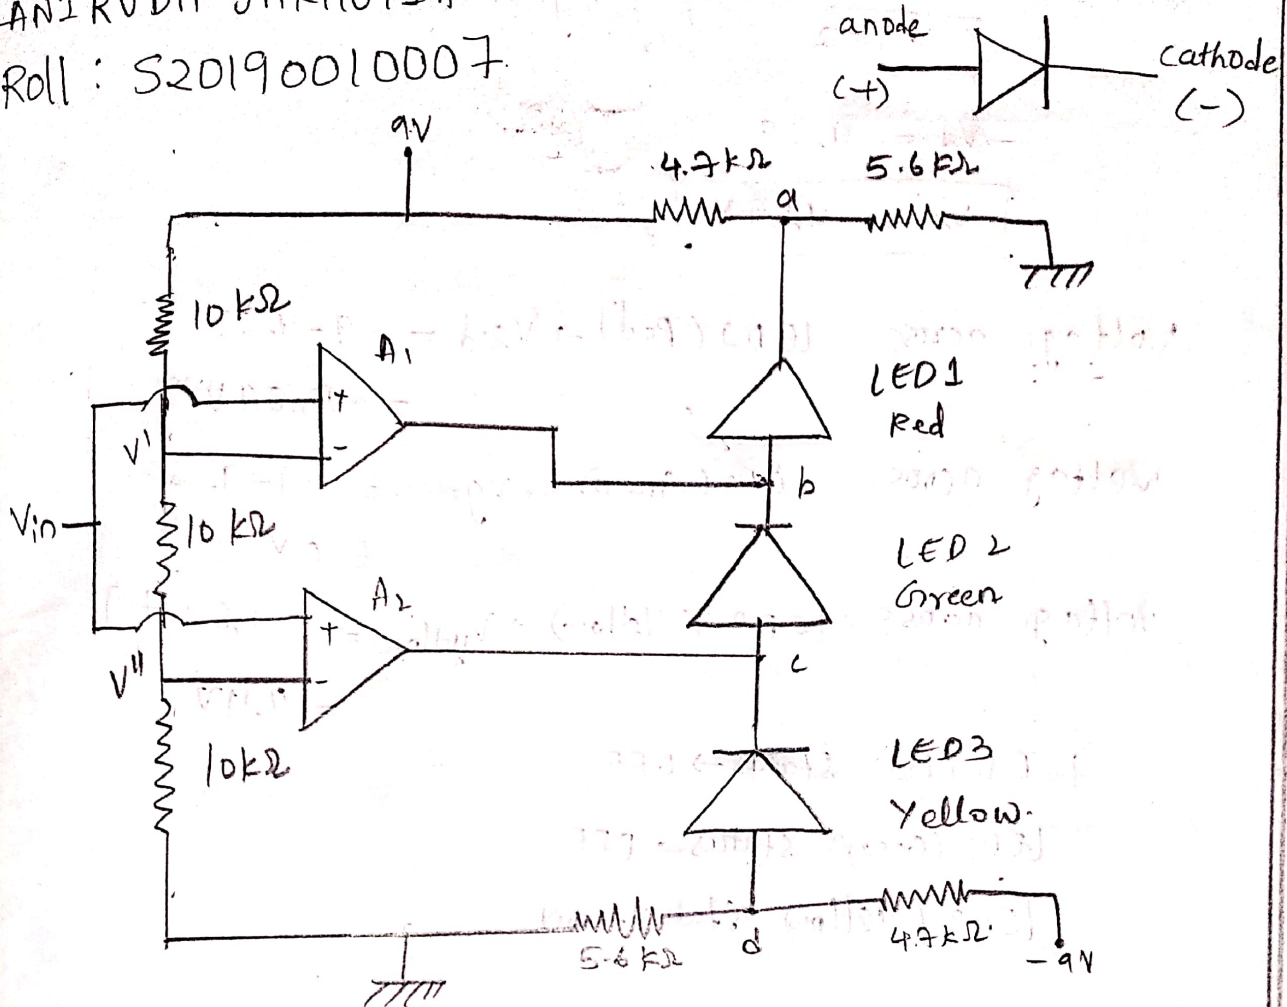 Roll : S20190010007.
anode
(+)
cathode
(-)
9V
4.7kΩ
a
5.6kΩ
10kΩ
A1
+
-
V'
LED1
Red
b
Vin
10kΩ
LED 2
Green
A2
+
-
V"
c
10kΩ
LED3
Yellow.
5.6kΩ
d
4.7kΩ
-9V